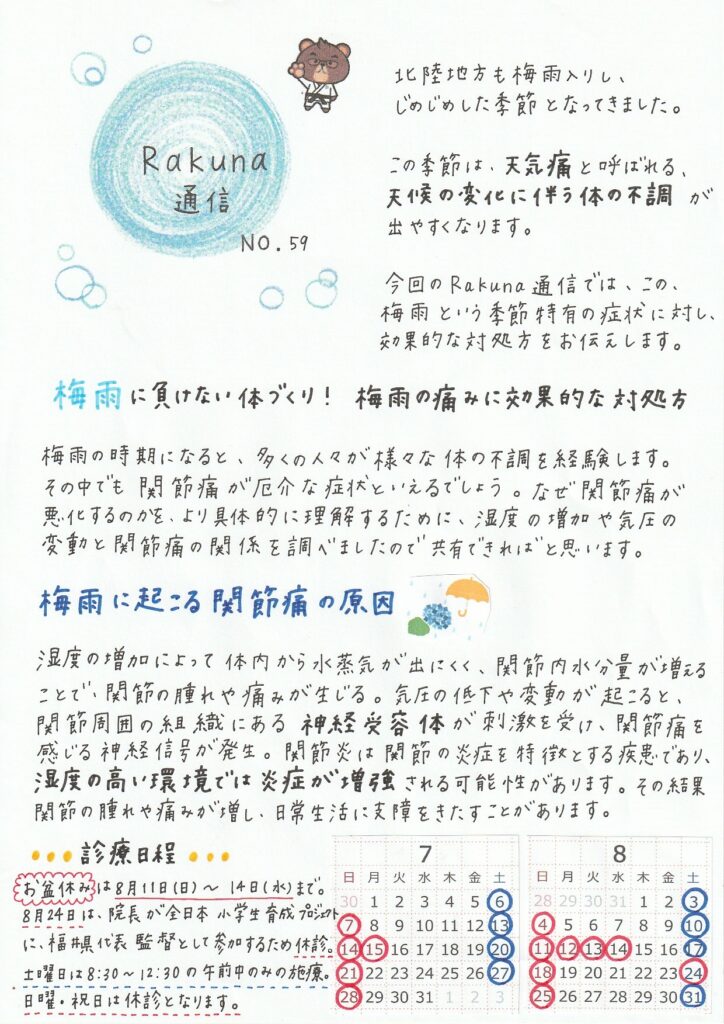 Rakuna
通信
NO.59
北陸地方も梅雨入りし、
じめじめした季節となってきました。
この季節は、天気痛と呼ばれる、
天候の変化に伴う体の不調が
出やすくなります。
今回のRakuna通信では、この、
梅雨という季節特有の症状に対し、
効果的な対処方をお伝えします。
梅雨に負けない体づくり！ 梅雨の痛みに効果的な対処方
梅雨の時期になると、多くの人々が様々な体の不調を経験します。
その中でも関節痛が厄介な症状といえるでしょう。なぜ関節痛が
悪化するのかを、より具体的に理解するために、湿度の増加や気圧の
変動と関節痛の関係を調べましたので共有できればと思います。
梅雨に起こる関節痛の原因
湿度の増加によって体内から水蒸気が出にくく、関節内水分量が増える
ことで、関節の腫れや痛みが生じる。気圧の低下や変動が起こると、
関節周囲の組織にある神経受容体が刺激を受け、関節痛を
感じる神経信号が発生。関節炎は関節の炎症を特徴とする疾患であり、
湿度の高い環境では炎症が増強される可能性があります。その結果
関節の腫れや痛みが増し、日常生活に支障をきたすことがあります。
•••診療日程•••
お盆休みは8月11日(日)〜14日(水)まで。
8月24日は、院長が全日本小学生育成プロジェクト
に、福井県代表監督として参加するため休診。
土曜日は8:30〜12:30の午前中のみの施療。
日曜・祝日は休診となります。
7
日 月 火 水 木 金 土
30 1 2 3 4 5 6
7 8 9 10 11 12 13
14 15 16 17 18 19 20
21 22 23 24 25 26 27
28 29 30 31 1 2 3
8
日 月 火 水 木 金 土
28 29 30 31 1 2 3
4 5 6 7 8 9 10
11 12 13 14 15 16 17
18 19 20 21 22 23 24
25 26 27 28 29 30 31